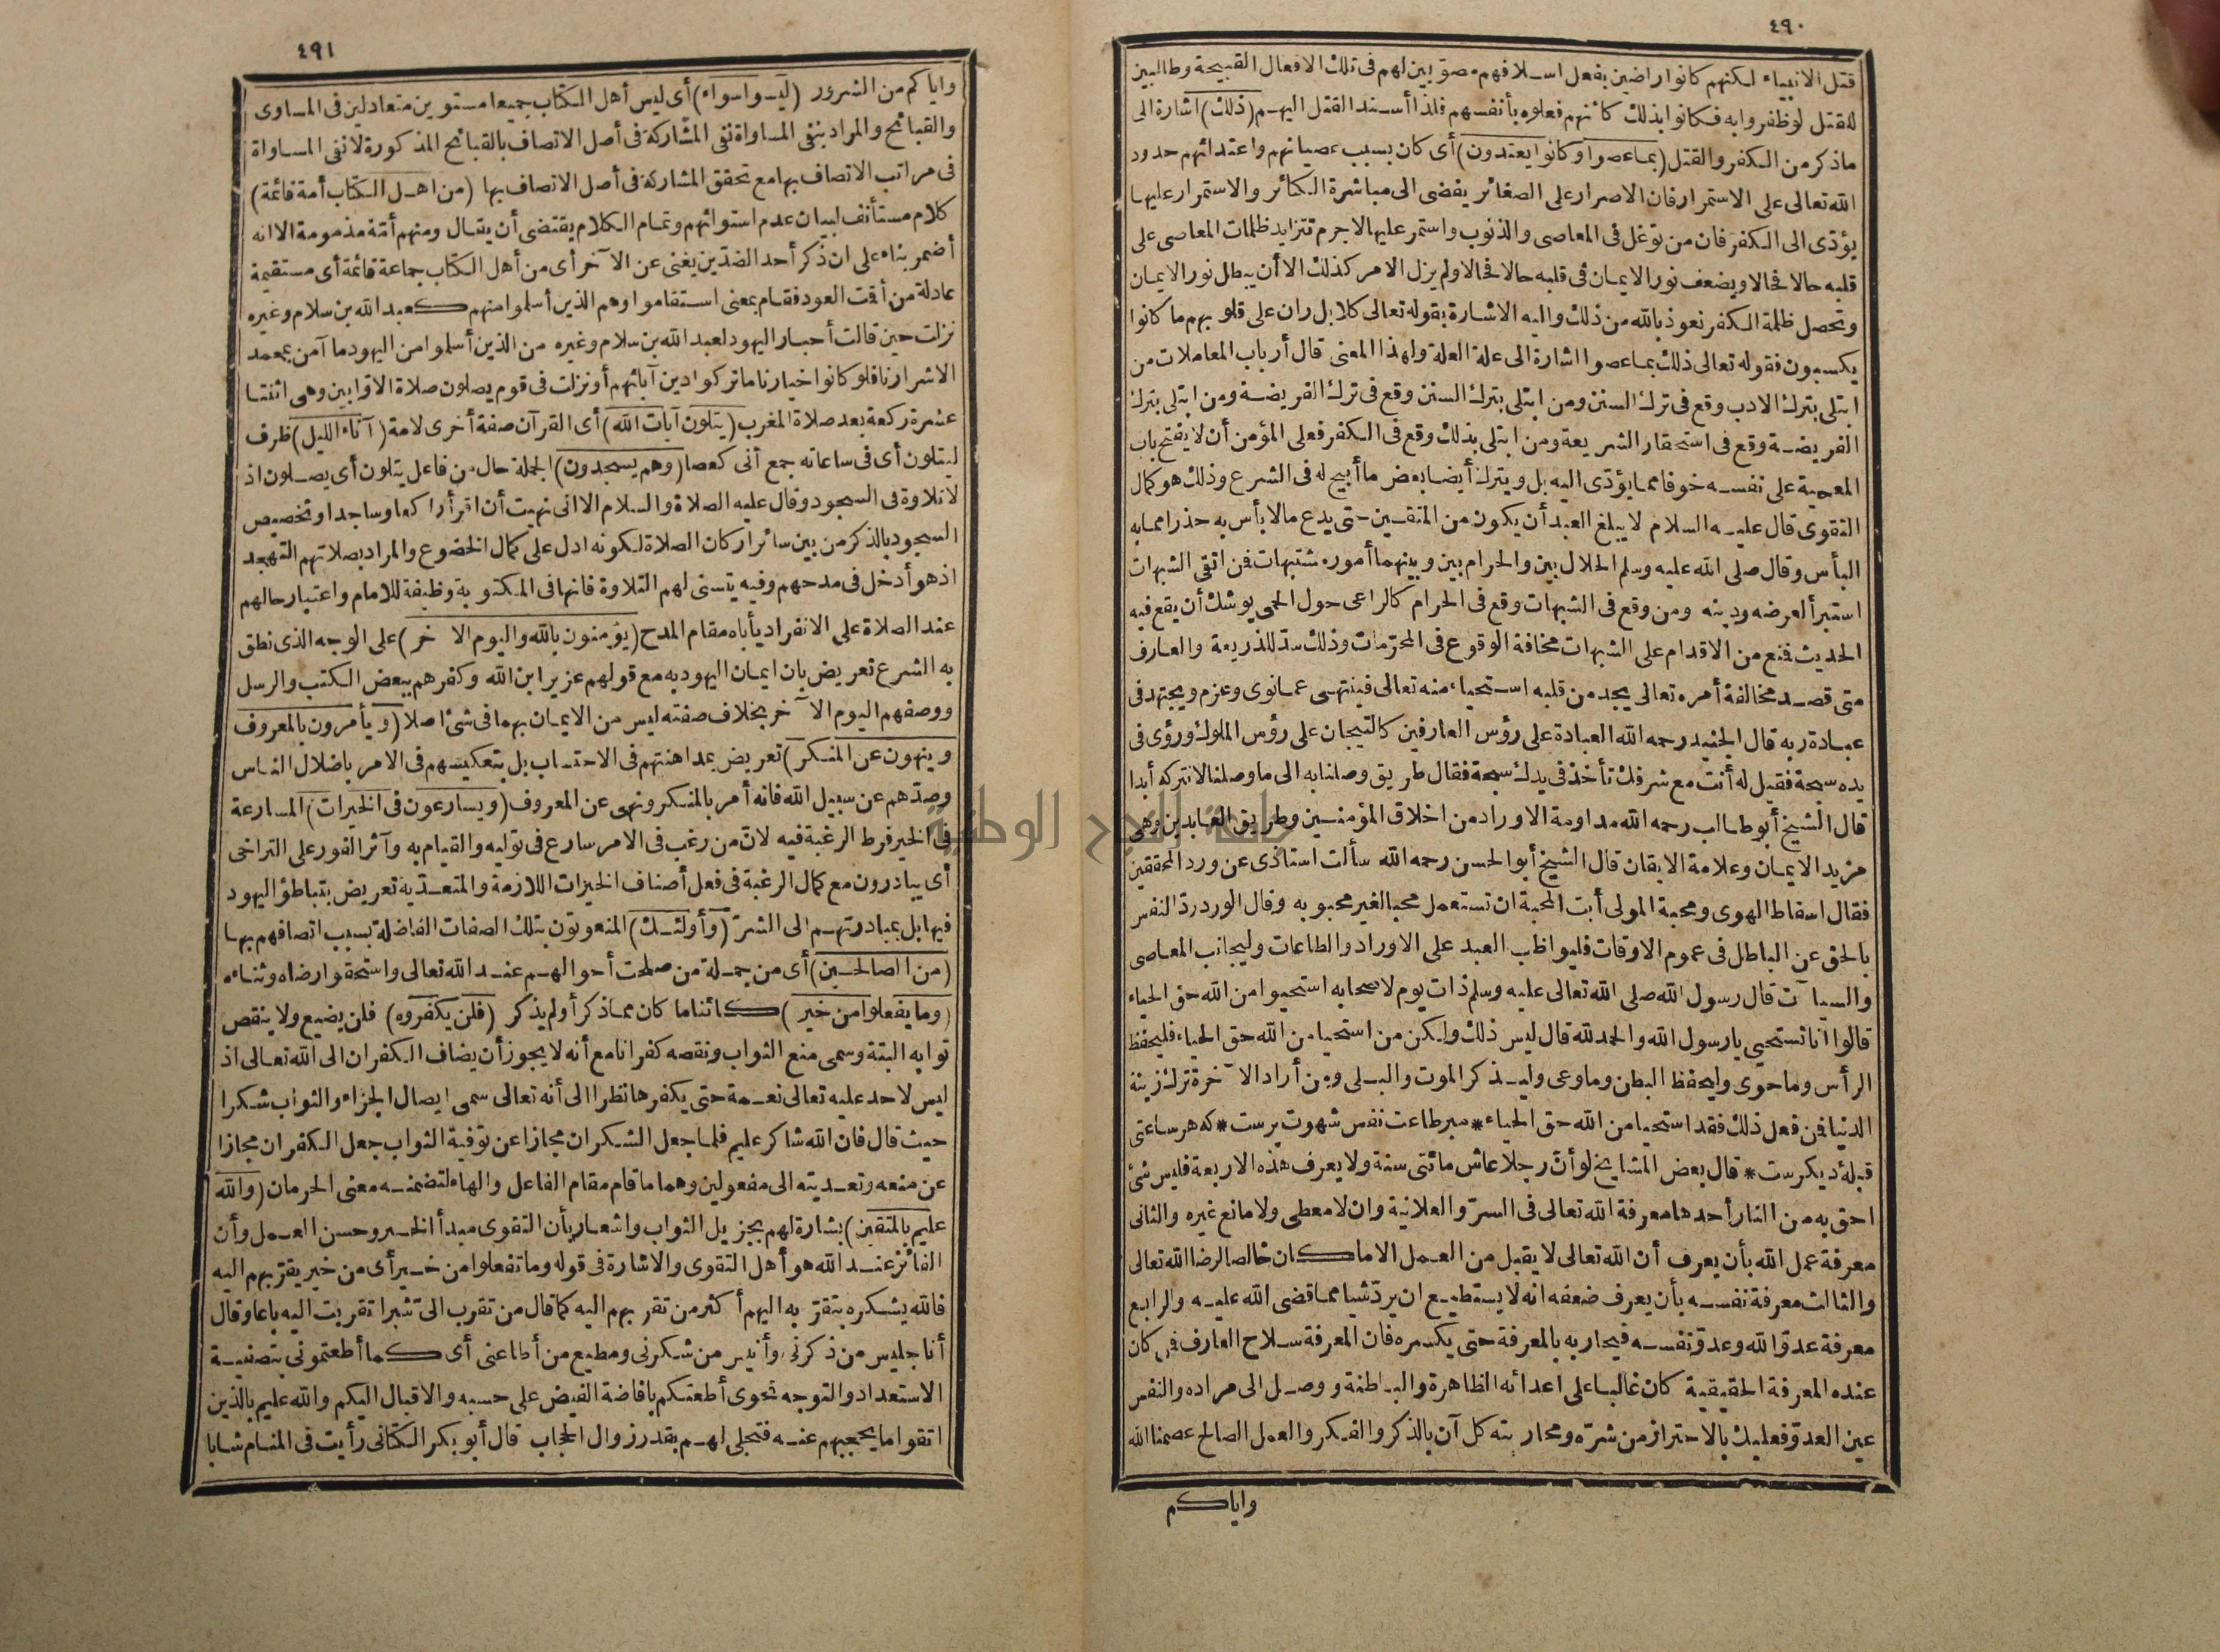 ٤٩٠
قتل الانبياء لكنهم كانوا راضين بفعل اسلافهم مصوّبين لهم فى تلك الافعال القبيحة وطالبين
للقتل لوظفروا به فكانوا بذلك كانهم فعلوه بأنفسهم فلذا أسند القتل اليهم (ذلك) اشارة الى
ماذكر من الكفر والقتل (بماعصوا وكانوا يعتدون) أى كان بسبب عصيانهم واعتدائهم حدود
الله تعالى على الاستمرار فان الاصرار على الصغائر يفضى الى مباشرة الكبائر والاستمرار عليها
يؤدّى الى الكفر فان من توغل فى المعاصى والذنوب واستمر عليها لاجرم تتزايد ظلمات المعاصى على
قلبه حالا فحالا ويضعف نور الايمان فى قلبه حالا فحالا ولم يزل الامر كذلك الا أن يبطل نور الايمان
وتحصل ظلمة الكفر نعوذ بالله من ذلك واليه الاشارة بقوله تعالى كلا بل ران على قلوبهم ما كانوا
يكسبون فقوله تعالى ذلك بماعصوا اشارة الى علة العلة ولهذا المعنى قال أرباب المعاملات من
ابتلى بترك الادب وقع فى ترك السنن ومن ابتلى بترك السنن وقع فى ترك الفريضة ومن ابتلى بترك
الفريضة وقع فى استحقار الشريعة ومن ابتلى بذلك وقع فى الكفر فعلى المؤمن أن لا يفتح باب
المعصية على نفسه خوفا مما يؤدّى اليه بل ويترك أيضا بعض ما أبيح له فى الشرع وذلك هو كمال
التقوى قال عليه السلام لا يبلغ العبد أن يكون من المتقين حتى يدع مالا بأس به حذرا مما به
البأس وقال صلى الله عليه وسلم الحلال بين والحرام بين وبينهما أمور مشتبهات فمن اتقى الشبهات
استبرأ لعرضه ودينه ومن وقع فى الشبهات وقع فى الحرام كالراعى حول الحمى يوشك أن يقع فيه
الحديث فمنع من الاقدام على الشبهات مخافة الوقوع فى المحرّمات وذلك سدّ للذريعة والعارف
متى قصد مخالفة أمره تعالى يجد من قلبه استحياء منه تعالى فينتهى عمانوى وعزم ويجتهد فى
عبادة ربه قال الجنيد رحمه الله العبادة على رؤس العارفين كالتيجان على رؤس الملوك ورؤى فى
يده سبحة فقيل له أنت مع شرفك تأخذ فى يدك سبحة فقال طريق وصلنا به الى ما وصلنا لا نتركه أبدا
قال الشيخ أبو طالب رحمه الله مداومة الاوراد من اخلاق المؤمنين وطريق العابدين وهى
مزيد الايمان وعلامة الايقان قال الشيخ أبو الحسن رحمه الله سألت استاذى عن ورد المحققين
فقال اسقاط الهوى ومحبة المولى أبت المحبة ان تستعمل محبا لغير محبوبه وقال الورد ردّ النفس
بالحق عن الباطل فى عموم الاوقات فليواظب العبد على الاوراد والطاعات وليجانب المعاصى
والسيآت قال رسول الله صلى الله تعالى عليه وسلم ذات يوم لاصحابه استحيوا من الله حق الحياء
قالوا انا نستحيى يا رسول الله والحمد لله قال ليس ذلك ولكن من استحيا من الله حق الحياء فليحفظ
الرأس وما حوى وليحفظ البطن وما وعى وليذكر الموت والبلى ومن أراد الآخرة ترك زينة
الدنيا فمن فعل ذلك فقد استحيا من الله حق الحياء * مبر طاعت نفس شهوت پرست * كه هر ساعتى
قبلهٔ ديكرست * قال بعض المشايخ لو أنّ رجلا عاش مائتى سنة ولا يعرف هذه الاربعة فليس شئ
احق به من النار أحدها معرفة الله تعالى فى السرّ والعلانية وان لا معطى ولا مانع غيره والثانى
معرفة عمل الله بأن يعرف أن الله تعالى لا يقبل من العمل الا ما كان خالصا لرضا الله تعالى
والثالث معرفة نفسه بأن يعرف ضعفه انه لا يستطيع ان يردّ شيا مما قضى الله عليه والرابع
معرفة عدوّ الله وعدوّ نفسه فيحاربه بالمعرفة حتى يكسره فان المعرفة سلاح العارف فمن كان
عنده المعرفة الحقيقية كان غالبا على اعدائه الظاهرة والباطنة ووصل الى مراده والنفس
عين العدوّ فعليك بالاحتراز من شرّه ومحاربته كل آن بالذكر والفكر والعمل الصالح عصمنا الله
واياكم
٤٩١
واياكم من الشرور (ليسوا سواء) أى ليس أهل الكتاب جميعا مستوين متعادلين فى المساوى
والقبائح والمراد بنفى المساواة نفى المشاركة فى أصل الاتصاف بالقبائح المذكورة لا نفى المساواة
فى مراتب الاتصاف بها مع تحقق المشاركة فى أصل الاتصاف بها (من اهل الكتاب أمة قائمة)
كلام مستأنف لبيان عدم استوائهم وتمام الكلام يقتضى أن يقال ومنهم أمّة مذمومة الا انه
أضمر بناء على ان ذكر أحد الضدّين يغنى عن الآخر أى من أهل الكتاب جماعة قائمة أى مستقيمة
عادلة من أقمت العود فقام بمعنى استقاموا وهم الذين أسلموا منهم كعبد الله بن سلام وغيره
نزلت حين قالت أحبار اليهود لعبد الله بن سلام وغيره من الذين أسلموا من اليهود ما آمن بمحمد
الا شرارنا فلو كانوا خيارنا ما تركوا دين آبائهم أو نزلت فى قوم يصلون صلاة الاوّابين وهى اثنتا
عشرة ركعة بعد صلاة المغرب (يتلون آيات الله) أى القرآن صفة أخرى لامة (آناء الليل) ظرف
ليتلون أى فى ساعاته جمع أنى كعصا (وهم يسجدون) الجملة حال من فاعل يتلون أى يصلون اذ
لا تلاوة فى السجود وقال عليه الصلاة والسلام الا انى نهيت أن اقرأ راكعا وساجدا وتخصيص
السجود بالذكر من بين سائر اركان الصلاة لكونه ادل على كمال الخضوع والمراد بصلاتهم التهجد
اذ هو أدخل فى مدحهم وفيه يتسنى لهم التلاوة فانها فى المكتوبة وظيفة للامام واعتبار حالهم
عند الصلاة على الانفراد يأباه مقام المدح (يؤمنون بالله واليوم الآخر) على الوجه الذى نطق
به الشرع تعريض بان ايمان اليهود به مع قولهم عزير ابن الله وكفرهم ببعض الكتب والرسل
ووصفهم اليوم الآخر بخلاف صفته ليس من الايمان بهما فى شئ اصلا (ويأمرون بالمعروف
وينهون عن المنكر) تعريض بمداهنتهم فى الاحتساب بل بتعكيسهم فى الامر باضلال الناس
وصدّهم عن سبيل الله فانه أمر بالمنكر ونهى عن المعروف (ويسارعون فى الخيرات) المسارعة
فى الخير فرط الرغبة فيه لانّ من رغب فى الامر سارع فى توليه والقيام به وآثر الفور على التراخى
أى يبادرون مع كمال الرغبة فى فعل أصناف الخيرات اللازمة والمتعدّية تعريض بتباطؤ اليهود
فيها بل بمبادرتهم الى الشرّ (وأولئك) المنعوتون بتلك الصفات الفاضلة بسبب اتصافهم بها
(من الصالحين) أى من جملة من صلحت أحوالهم عند الله تعالى واستحقوا رضاه وثناءه
(وما يفعلوا من خير) كائنا ما كان مما ذكر أو لم يذكر (فلن يكفروه) فلن يضيع ولا ينقص
ثوابه البتة وسمى منع الثواب ونقصه كفرانا مع أنه لا يجوز أن يضاف الكفران الى الله تعالى اذ
ليس لاحد عليه تعالى نعمة حتى يكفرها نظرا الى أنه تعالى سمى ايصال الجزاء والثواب شكرا
حيث قال فان الله شاكر عليم فلما جعل الشكر ان مجازا عن توفية الثواب جعل الكفران مجازا
عن منعه وتعديته الى مفعولين وهما ما قام مقام الفاعل والهاء لتضمنه معنى الحرمان (والله
عليم بالمتقين) بشارة لهم بجزيل الثواب واشعار بأن التقوى مبدأ الخير وحسن العمل وأن
الفائز عند الله هو أهل التقوى والاشارة فى قوله وما تفعلوا من خير أى من خير يقرّبهم اليه
فالله يشكره بتقرّبه اليهم أكثر من تقربهم اليه كما قال من تقرب الىّ شبرا تقربت اليه باعا وقال
أنا جليس من ذكرنى وأنيس من شكرنى ومطيع من أطاعنى أى كما أطعتمونى بتصفية
الاستعداد والتوجه نحوى أطعتكم بافاضة الفيض على حسبه والاقبال اليكم والله عليم بالذين
اتقوا ما يحجبهم عنه فتجلى لهم بقدر زوال الحجاب قال أبو بكر الكتانى رأيت فى المنام شابا